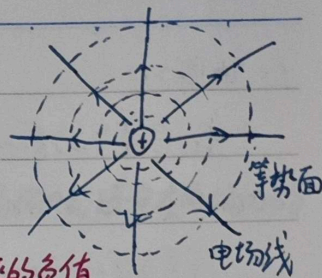 +
等势面
电场线
的负值